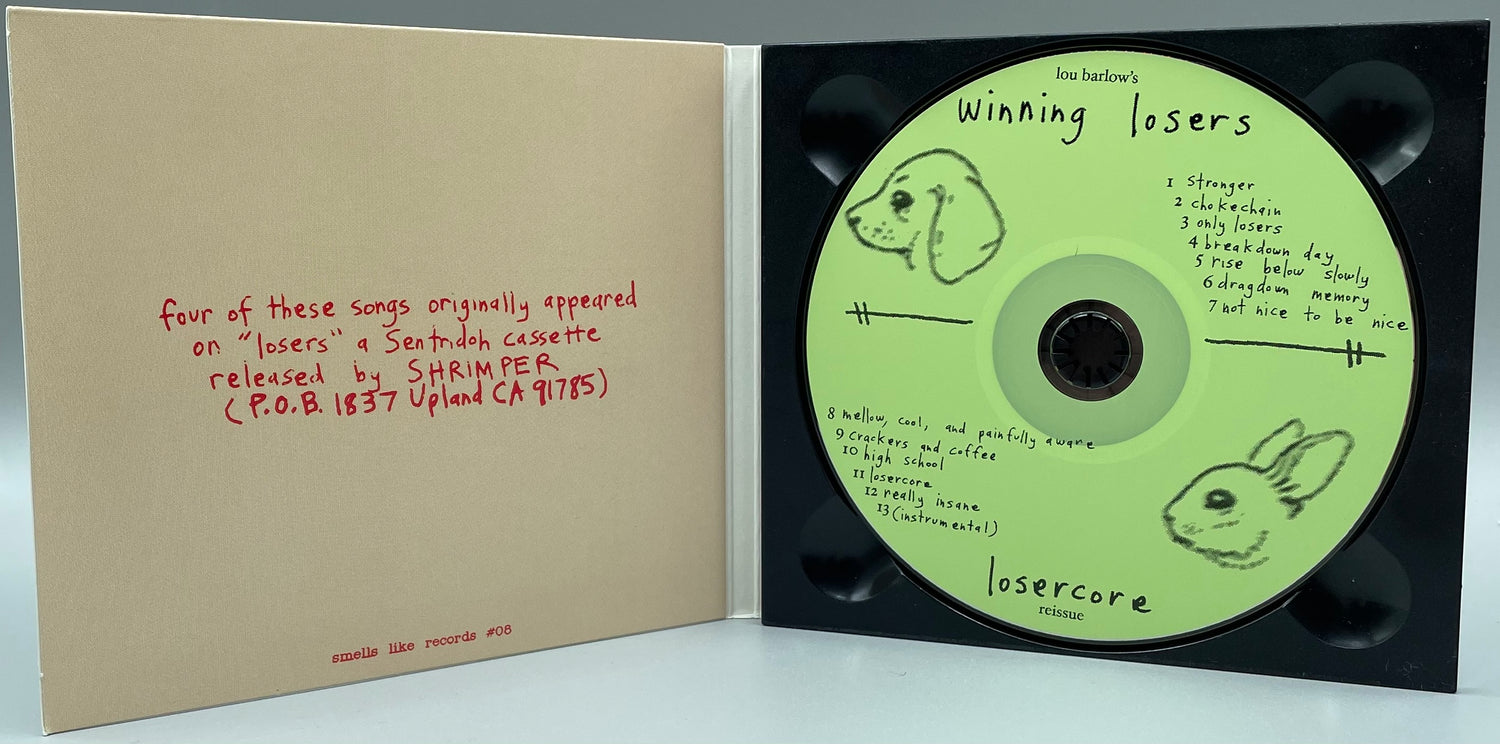 four of these songs originally appeared
on "losers" a Sentridoh cassette
released by SHRIMPER
(P.O.B. 1837 Upland CA 91785)
smells like records #08
lou barlow's
winning losers
1 stronger
2 chokechain
3 only losers
4 breakdown day
5 rise below slowly
6 dragdown memory
7 not nice to be nice
8 mellow, cool, and painfully aware
9 crackers and coffee
10 high school
11 losercore
12 really insane
13 (instrumental)
losercore
reissue